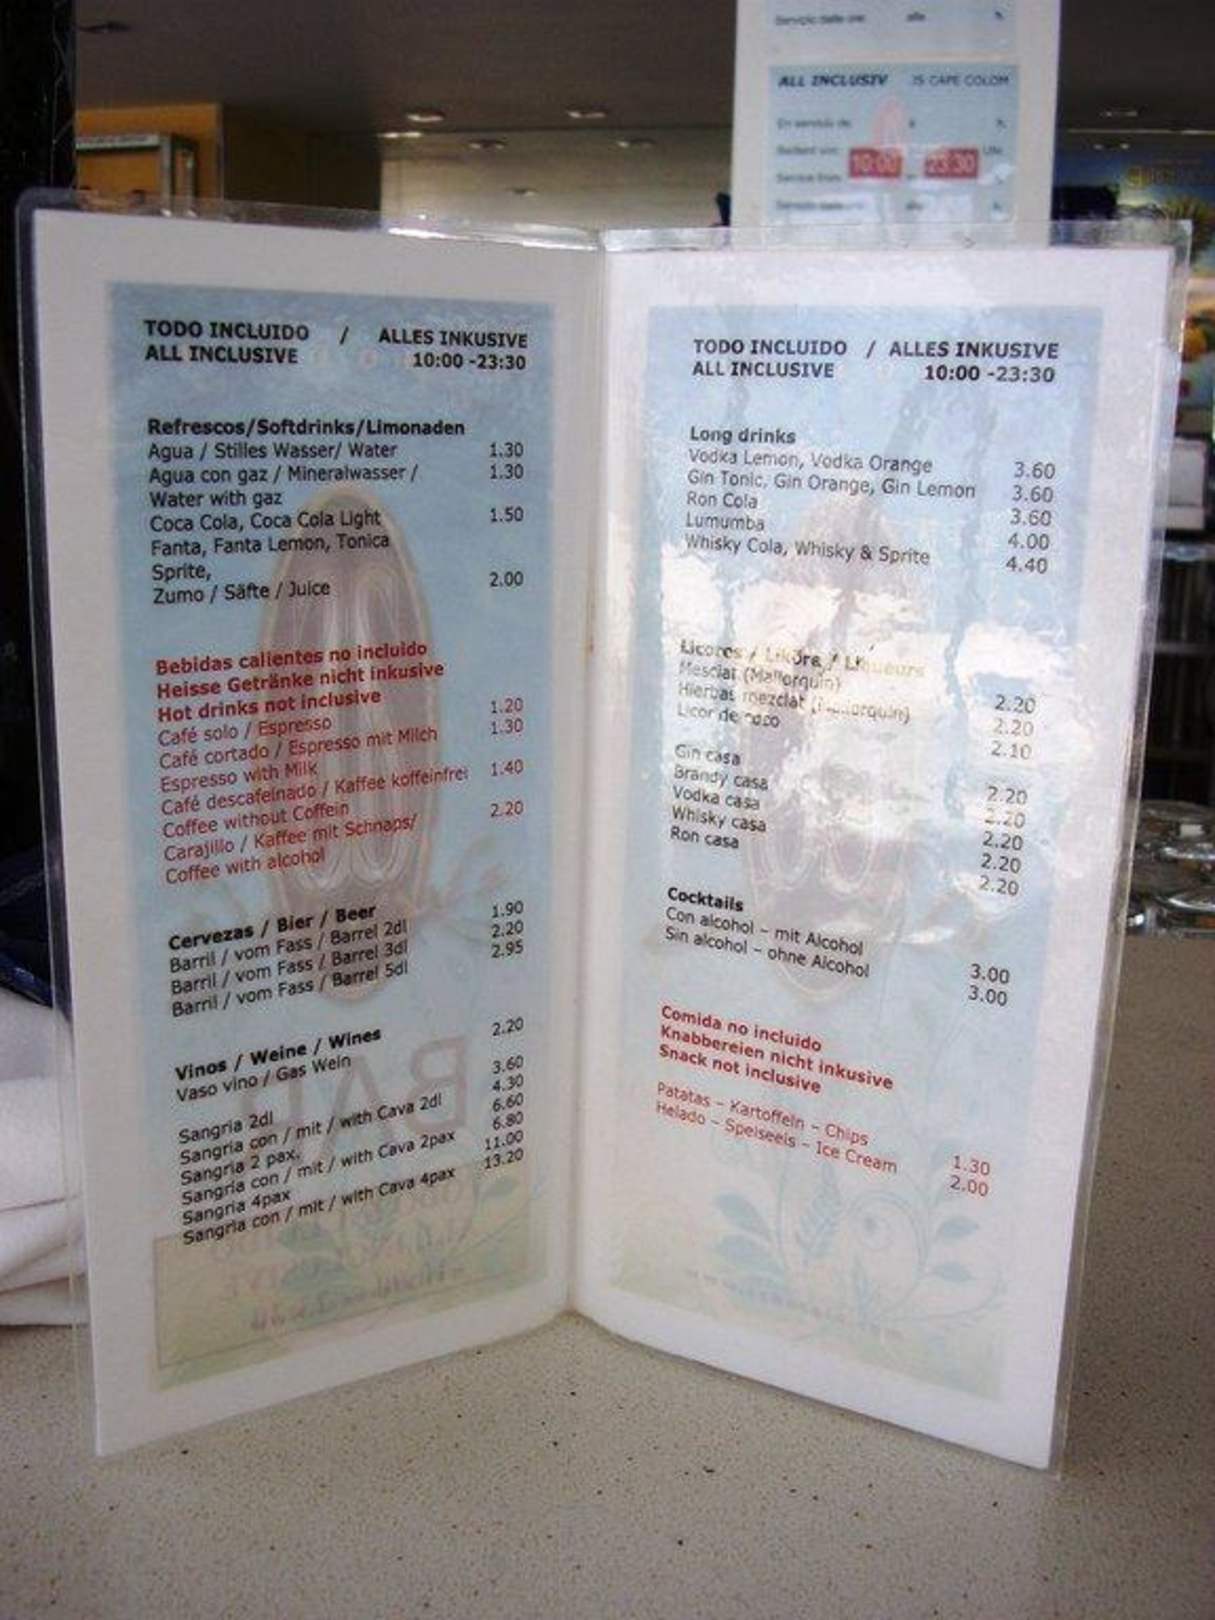 Servicio dalle ore: alle h.
ALL INCLUSIV JS CAPE COLOM
En servicio de: a h.
Bedient von: Uhr
10:00 23:30
Service from: h.
Servicio dalle ore: alle h.
TODO INCLUIDO / ALLES INKUSIVE
ALL INCLUSIVE 10:00 -23:30
Refrescos/Softdrinks/Limonaden
Agua / Stilles Wasser/ Water 1.30
Agua con gaz / Mineralwasser / 1.30
Water with gaz
Coca Cola, Coca Cola Light 1.50
Fanta, Fanta Lemon, Tonica
Sprite,
Zumo / Säfte / Juice 2.00
Bebidas calientes no incluido
Heisse Getränke nicht inkusive
Hot drinks not inclusive
Café solo / Espresso 1.20
Café cortado / Espresso mit Milch 1.30
Espresso with Milk
Café descafeinado / Kaffee koffeinfrei 1.40
Coffee without Coffein
Carajillo / Kaffee mit Schnaps/ 2.20
Coffee with alcohol
Cervezas / Bier / Beer
Barril / vom Fass / Barrel 2dl 1.90
Barril / vom Fass / Barrel 3dl 2.20
Barril / vom Fass / Barrel 5dl 2.95
Vinos / Weine / Wines
Vaso vino / Gas Wein 2.20
Sangria 2dl 3.60
Sangria con / mit / with Cava 2dl 4.30
Sangria 2 pax. 6.60
Sangria con / mit / with Cava 2pax 6.80
Sangria 4pax 11.00
Sangria con / mit / with Cava 4pax 13.20
TODO INCLUIDO / ALLES INKUSIVE
ALL INCLUSIVE 10:00 -23:30
Long drinks
Vodka Lemon, Vodka Orange 3.60
Gin Tonic, Gin Orange, Gin Lemon 3.60
Ron Cola 3.60
Lumumba 4.00
Whisky Cola, Whisky & Sprite 4.40
Licores / Liköre / Liqueurs
Mesclat (Mallorquin) 2.20
Hierbas mezclat (Mallorquin) 2.20
Licor de coco 2.10
Gin casa 2.20
Brandy casa 2.20
Vodka casa 2.20
Whisky casa 2.20
Ron casa 2.20
Cocktails
Con alcohol – mit Alcohol 3.00
Sin alcohol – ohne Alcohol 3.00
Comida no incluido
Knabbereien nicht inkusive
Snack not inclusive
Patatas – Kartoffeln – Chips 1.30
Helado – Speiseeis – Ice Cream 2.00